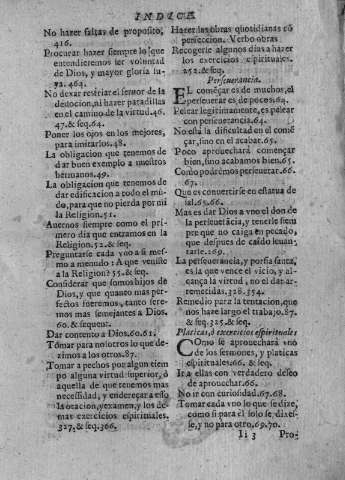 INDICE
No hazer faltas de proposito,
416.
Procurar hazer siempre lo que
entendieremos ser voluntad
de Dios, y mayor gloria su-
ya. 464.
No dexar resfriar el feruor de la
deuocion, ni hazer paradillas
en el camino de la virtud. 46.
47. & seq. 64.
Poner los ojos en los mejores,
para imitarlos. 48.
La obligacion que tenemos de
dar buen exemplo a nuestros
hermanos. 49.
La obligacion que tenemos de
dar edificacion a todo el mũ-
do, para que no pierda por mi
la Religion. 51.
Auernos siempre como el pri-
mero dia que entramos en la
Religion. 52. & seq.
Preguntarse cada vno a si mes-
mo a menudo: A que veniste
a la Religion? 55. & seq.
Considerar que somos hijos de
Dios, y que quanto mas per-
fectos fueremos, tanto sere-
mos mas semejantes a Dios.
60. & sequent.
Dar contento a Dios. 60. 61.
Tomar para nosotros lo que de-
zimos a los otros. 87.
Tomar a pechos por algun tiem
po alguna virtud superior, ò
aquella de que tenemos mas
necessidad, y endereçar a esso
la oracion, y examen, y los de-
mas exercicios espirituales.
327. & seq. 366.
Hazer las obras quotidianas cõ
perfeccion. Verbo obras
Recogerse algunos dias a hazer
los exercicios espirituales.
252. & seq.
Perseuerancia.
EL começar es de muchos, el
perseuerar es de pocos. 64.
Pelear legitimamente, es pelear
con perseuerancia. 64.
No està la dificultad en el come
çar, sino en el acabar. 65.
Poco aprouecharà començar
bien, sino acabamos bien. 65.
Como podremos perseuerar. 66.
67.
Que es conuertirse en estatua de
sal. 65. 66.
Mas es dar Dios a vno el don de
la perseuerãcia, y tenerle siem
pre que no caiga en pecado,
que despues de caido leuan-
tarle. 169.
La perseuerancia, y porfia santa,
es la que vence el vicio, y al-
cança la virtud, no el dar ar-
remetidas. 328. 354.
Remedio para la tentacion, que
nos haze largo el trabajo. 87.
& seq. 325. & seq.
Platicas, ò exercicios espirituales
COmo se aprouecharà vno
de los sermones, y platicas
espirituales. 66. & seq.
Ir a ellas con verdadero deseo
de aprouechar. 66.
No ir con curiosidad. 67. 68.
Tomar cada vno lo que se dize,
como si para èl solo se dixes-
se, y no para otro. 69. 70.
Ii 3 Pro-